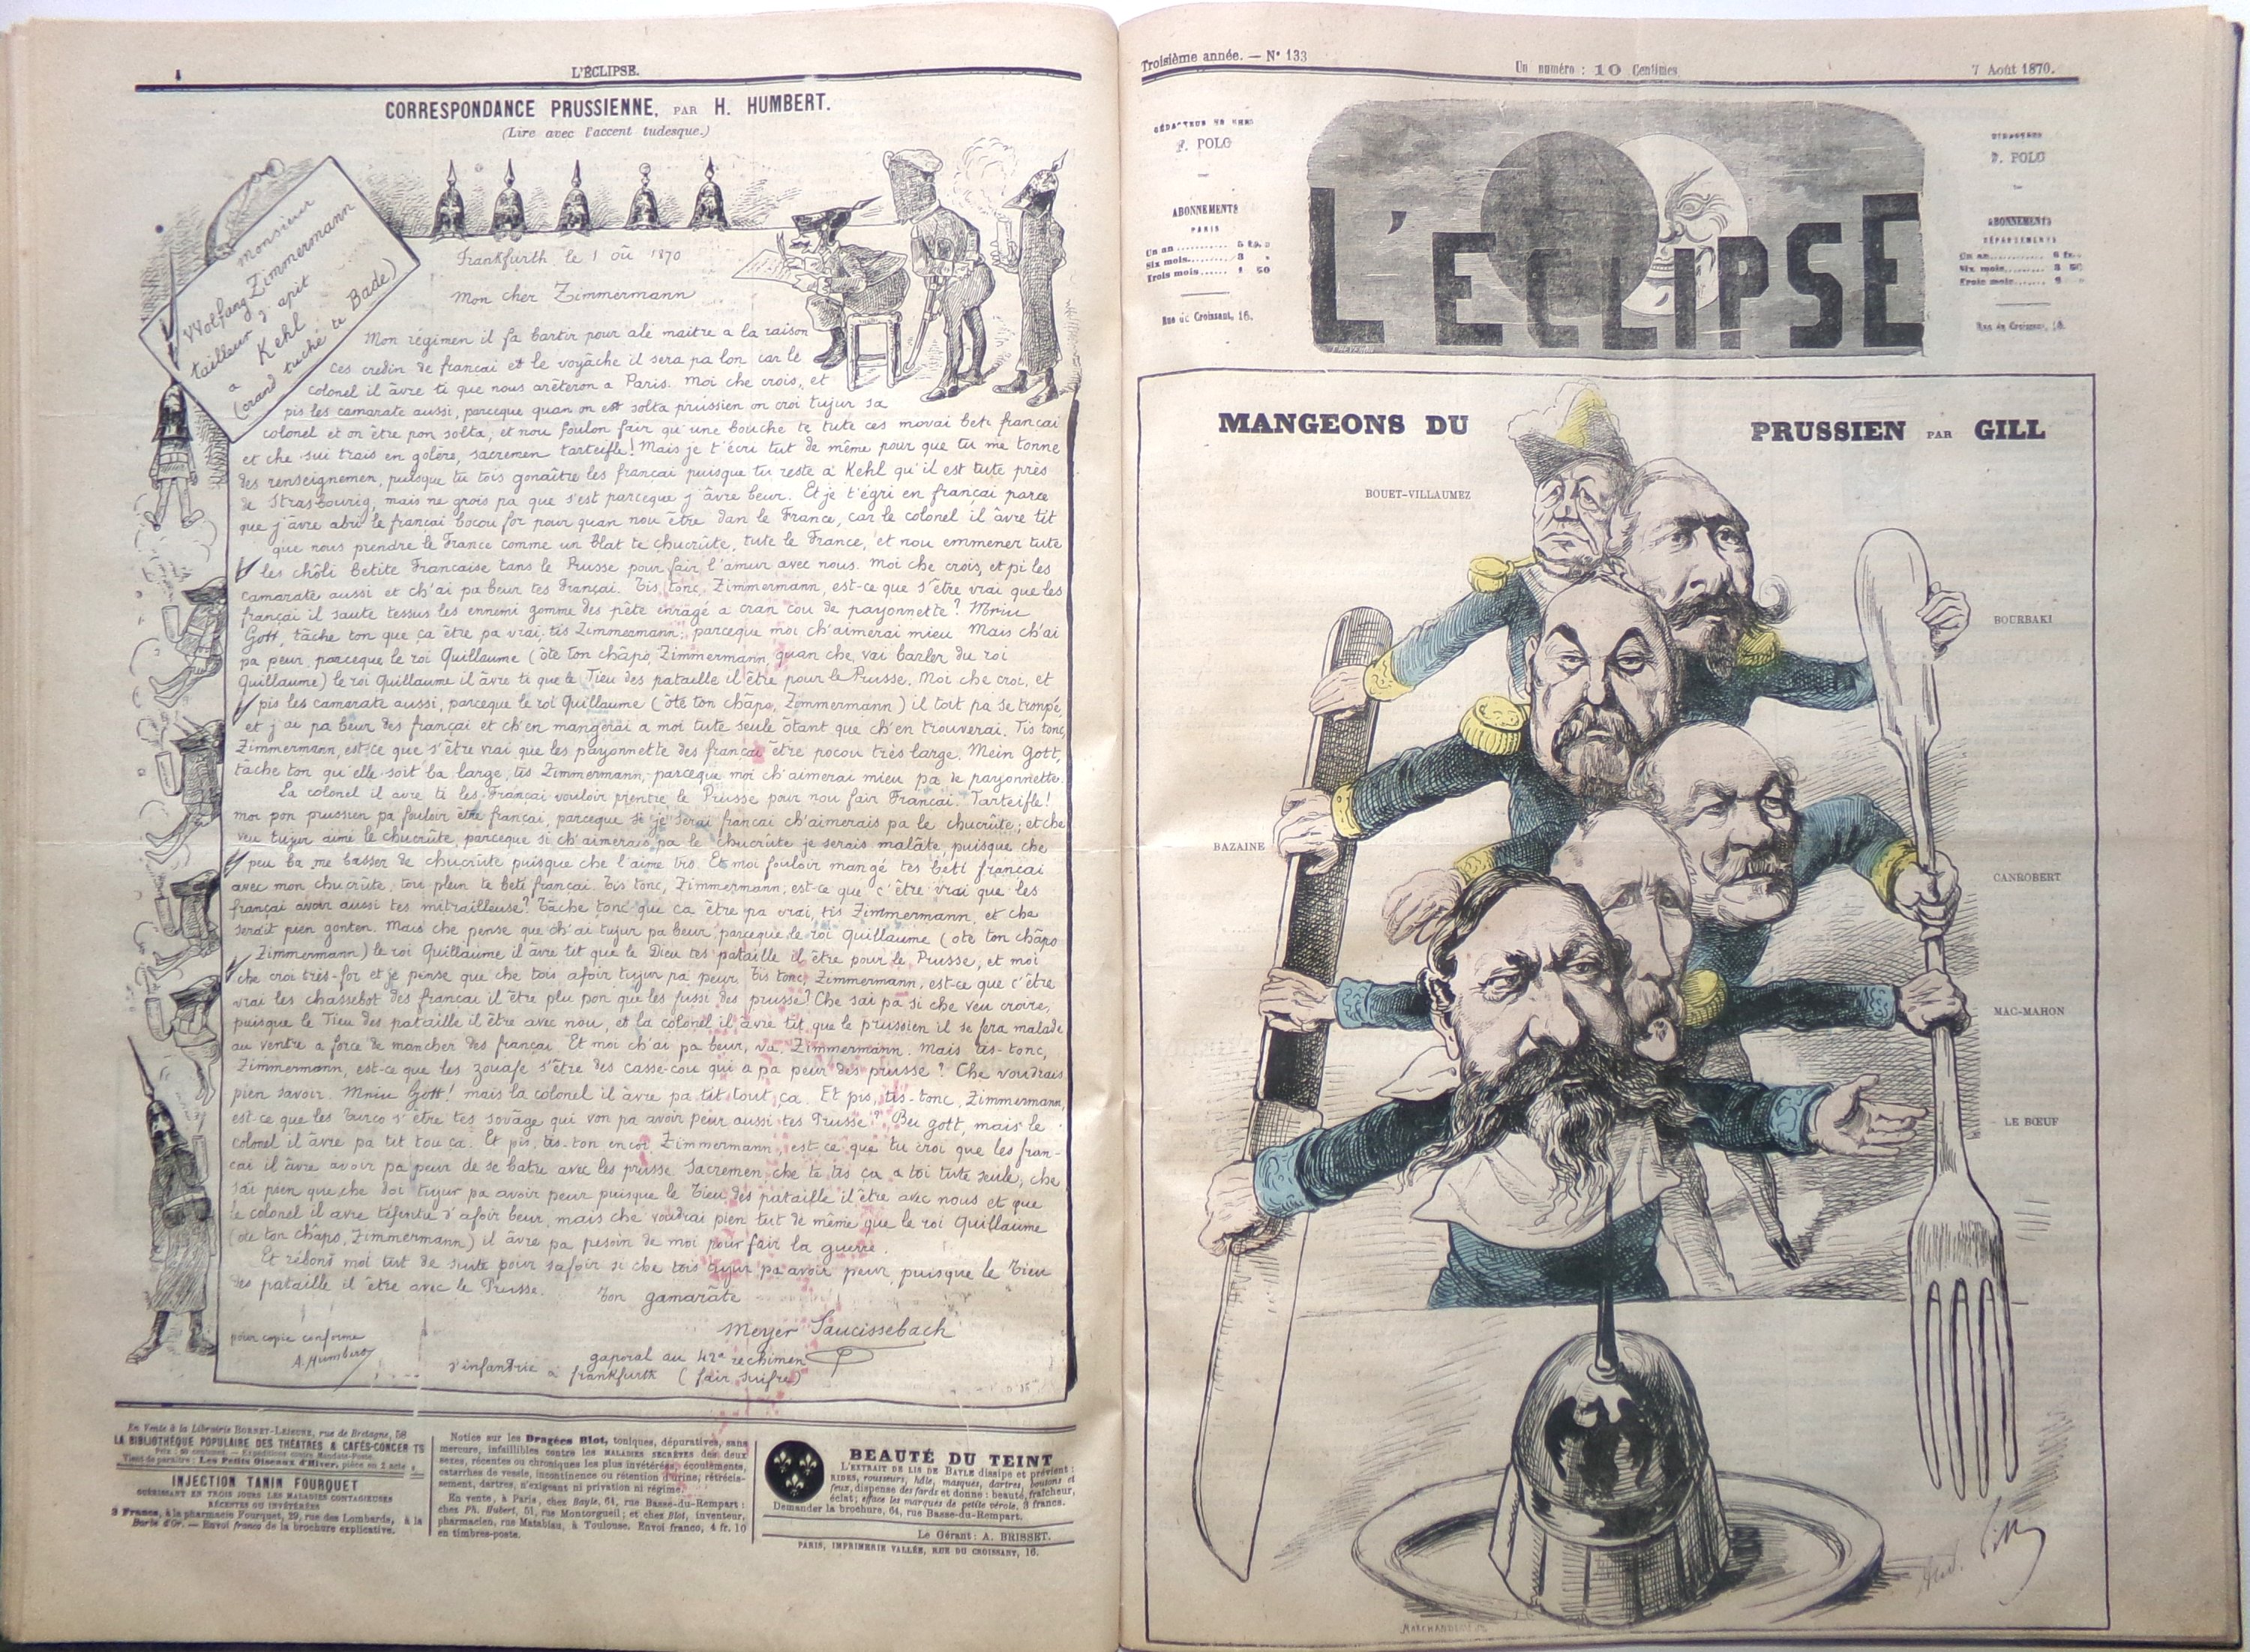 4
L'ÉCLIPSE.
CORRESPONDANCE PRUSSIENNE, PAR H. HUMBERT.
(Lire avec l'accent tudesque.)
Monsieur
Wolfang Zimmermann
tailleur d'apit
a Kehl
(crand tuché te Bade)
Frankfurth le 1 oû 1870
Mon cher Zimmermann
Mon régimen il fa bartir pour alé maitre a la raison
ces credin de francai et le voyâche il sera pa lon car le
colonel il âvre ti que nous arêteron a Paris. Moi che crois, et
pis les camarate aussi, parceque quan on est solta prussien on croi tujur sa
colonel et on être pon solta, et nou foulon fair qu'une bouché te tute ces movai beti francai
et che sui trais en golère, sacremen tarteifle! Mais je t'écri tut de même pour que tu me tonne
des renseignemen, puisque tu tois gonaître les francai puisque tu reste a Kehl qu'il est tute près
de Strasbourig, mais ne grois pa que s'est parceque j'âvre beur. Et je t'égri en francai parce
que j'âvre abri le francai bocou for pour quan nou être dan le France, car le colonel il âvre tit
que nous prendre le France comme un blat te chucrûte, tute le France, et nou emmener tute
les chôli betite Francaise tans le Prusse pour fair l'amur avec nous. Moi che crois, et pi les
camarate aussi et ch'ai pa beur tes Francai. Tis, tonc, Zimmermann, est-ce que s'être vrai que les
francai il saute tessus les ennemi gomme des pête enragé a cran cou de payonnette? Mein
Gott, tâche ton que ça être pa vrai, tis Zimmermann, parceque moi ch'aimerai mieu. Mais ch'ai
pa peur, parceque le roi Quillaume (ôte ton châpo, Zimmermann, quan che vai barler du roi
Quillaume) le roi Quillaume il âvre ti que le Tieu des pataille il être pour le Prusse. Moi che croi, et
pis les camarate aussi, parceque le roi Quillaume (ôte ton châpo, Zimmermann) il toit pa se trompé,
et j'ai pa beur des francai et ch'en mangerai a moi tute seule ôtant que ch'en trouverai. Tis tonc,
Zimmermann, est-ce que s'être vrai que les payonnette des francai être pocou très large. Mein Gott,
tâche ton qu'elle soit ba large, tis Zimmermann, parceque moi ch'aimerai mieu pa de payonnette.
La colonel il avre ti les Francai vouloir prentre le Prusse pour nou fair Francai. Tarteifle!
moi pon prussien pa fouloir être francai, parceque si je serai francai ch'aimerais pa le chucrûte; et che
veu tujur aimé le chucrûte, parceque si ch'aimerais pa le chucrûte je serais malâte, puisque che
peu ba me basser de chucrûte puisque che l'aime tro. Et moi fouloir mangé tes béti francai
avec mon chucrûte, tou plein te béti francai. Tis tonc, Zimmermann, est-ce que c'être vrai que les
francai avoir aussi tes mitrailleuse? Tâche tonc que ca être pa vrai, tis Zimmermann, et che
serait pien gonten. Mais che pense que ch'ai tujur pa beur, parceque le roi Quillaume (ote ton châpo
Zimmermann) le roi Quillaume il âvre tit que le Dieu tes pataille il être pour le Prusse, et moi
che croi très-for et je pense que che tois afoir tujur pa peur. Tis tonc, Zimmermann, est-ce que c'être
vrai les chassebot des francai il être plu pon que les fussi des prusse? Che sai pa si che veu croire,
puisque le Tieu des pataille il être avec nou, et la colonel il âvre tit que le prussien il se fera malade
au ventre a force de mancher des francai. Et moi ch'ai pa beur, va, Zimmermann. Mais tis-tonc,
Zimmermann, est-ce que les zouafe s'être des casse-cou qui a pa peur des prusse? Che voudrais
pien savoir. Mein Gott! mais la colonel il âvre pa tit tout ça. Et pis, tis-tonc, Zimmermann,
est-ce que les Turco s'être tes sovâge qui von pa avoir peur aussi tes Prusse? Beu gott, mais le
colonel il âvre pa tit tou ça. Et pis, tis-ton encor Zimmermann, est-ce que tu croi que les fran-
cai il âvre avoir pa peur de se batre avec les prusse. Sacremen, che te tis ça a toi tute seule, che
sai pien que che doi tujur pa avoir peur puisque le Tieu des pataille il être avec nous et que
le colonel il avre téfentu d'afoir beur, mais che voudrai pien tut de même que le roi Quillaume
(ote ton châpo, Zimmermann) il âvre pa pesoin de moi pour fair la guerre.
Et rébons moi tut de suite pour safoir si che tois tujur pa avoir peur, puisque le Tieu
des pataille il être avec le Prusse.
Ton gamarâte
Meyer Saucissebach
gaporal au 42e rechimen
d'infantrie a frankfurth (fair suifre)
pour copie conforme
A. Humbert
En Vente à la Librairie BORNET-LEJEUNE, rue de Bretagne, 58
LA BIBLIOTHÈQUE POPULAIRE DES THÉATRES & CAFÉS-CONCERTS
Prix : 20 centimes. — Expéditions contre Mandats-Poste.
Vient de paraître : Les Petits Oiseaux d'Hiver, pièce en 2 acte
INJECTION TANIN FOURQUET
GUÉRISSANT EN TROIS JOURS LES MALADIES CONTAGIEUSES
RÉCENTES OU INVÉTÉRÉES
3 Francs, à la pharmacie Fourquet, 29, rue des Lombards, à la
Barbe d'Or. — Envoi franco de la brochure explicative.
Notice sur les Dragées Blot, toniques, dépuratives, sans
mercure, infaillibles contre les MALADIES SECRÈTES des deux
sexes, récentes ou chroniques les plus invétérées, écoulements,
catarrhes de vessie, incontinence ou rétention d'urine, rétrécis-
sement, dartres, n'exigeant ni privation ni régime.
En vente, à Paris, chez Bayle, 64, rue Basse-du-Rempart ;
chez Ph. Hubert, 51, rue Montorgueil ; et chez Blot, inventeur,
pharmacien, rue Matabiau, à Toulouse. Envoi franco, 4 fr. 10
en timbres-poste.
BEAUTÉ DU TEINT
L'EXTRAIT DE LIS DE BAYLE dissipe et prévient :
RIDES, rousseurs, hâle, masques, dartres, boutons et
feux, dispense des fards et donne : beauté, fraîcheur,
éclat; efface les marques de petite vérole. 3 francs.
Demander la brochure, 64, rue Basse-du-Rempart.
Le Gérant : A. BRISSET.
PARIS, IMPRIMERIE VALLÉE, RUE DU CROISSANT, 16.
Troisième année. — N° 133
Un numéro : 10 Centimes
7 Août 1870.
RÉDACTEUR EN CHEF
F. POLO
ABONNEMENTS
PARIS
Un an
Six mois
Trois mois 1 50
Rue du Croissant, 16.
L'ECLIPSE
F. POLO
ABONNEMENTS
DÉPARTEMENTS
Un an
Six mois
Trois mois
Rue du Croissant, 16.
MANGEONS DU PRUSSIEN PAR GILL
BOUET-VILLAUMEZ
BOURBAKI
BAZAINE
CANROBERT
MAC-MAHON
LE BŒUF
And. Gill